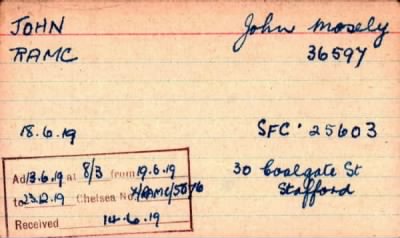 JOHN John Mosely
RAMC 36597
18.6.19 SFC· 25603
30 Coalgate St
Stafford
Ad 13.6.19 at 8/3 from 19.6.19
to 23.12.19 Chelsea No. X/RAMC/5876
Received 14.6.19